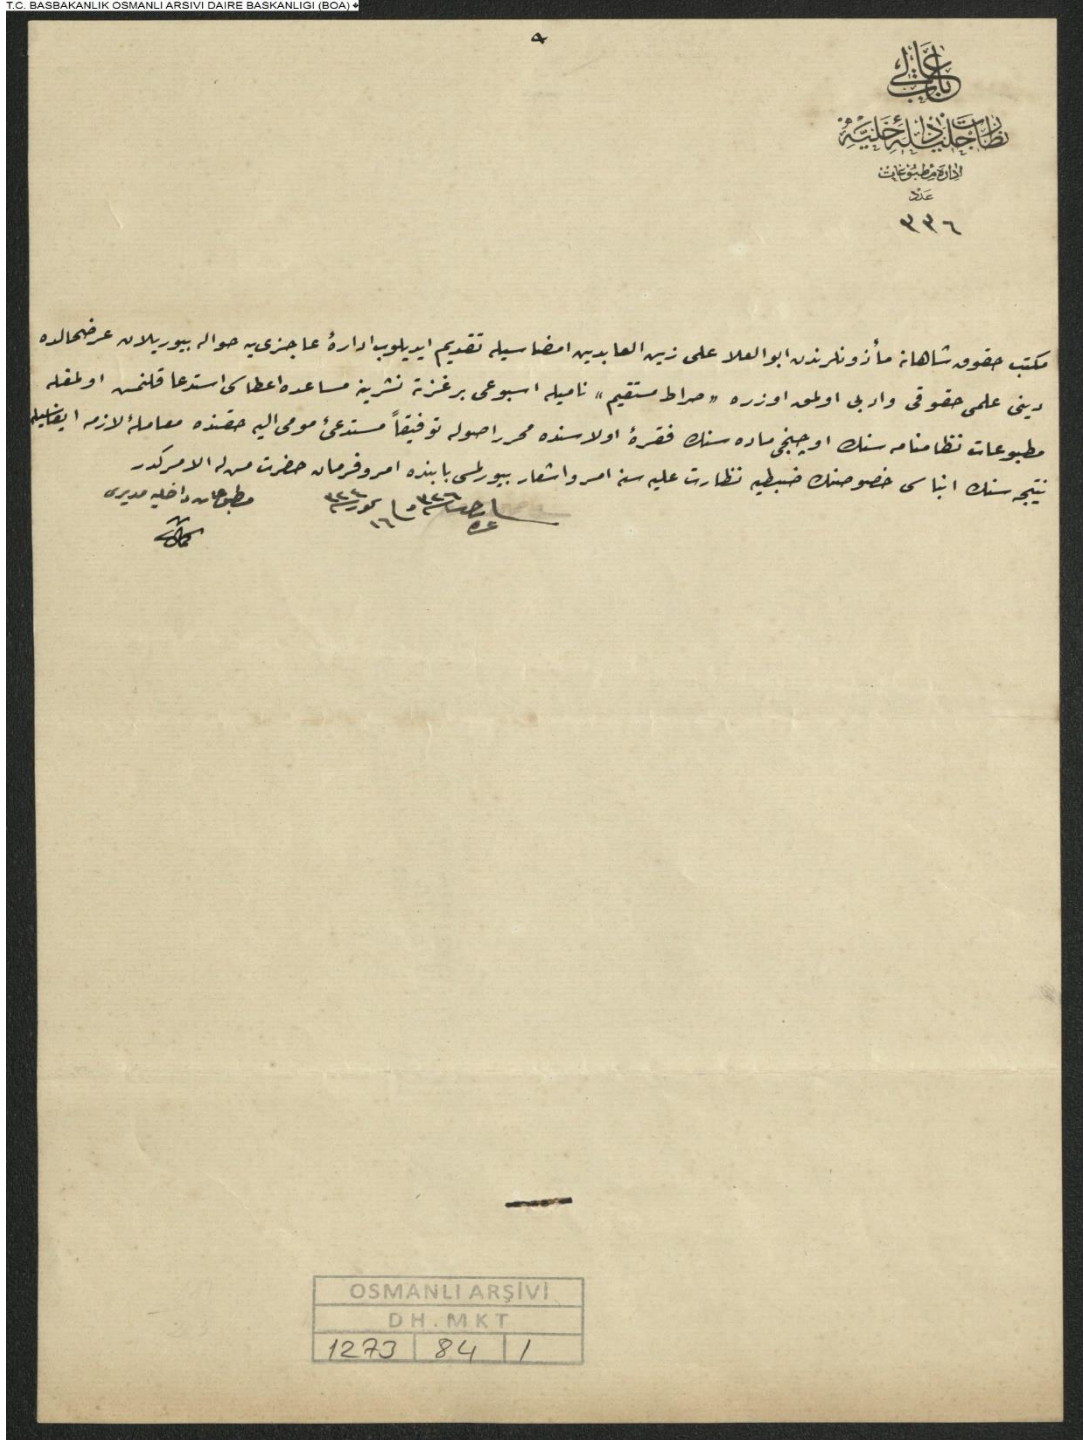 T.C. BASBAKANLIK OSMANLI ARSIVI DAIRE BASKANLIGI (BOA)
باب عالی
نظارت جلیلۀ داخلیه
ادارۀ مطبوعات
عدد
٣٣٦
مكتب حقوق شاهانه مأذونلرندن ابو العلا على زين العابدين امضاسيله تقديم ايديلوب ادارۀ عاجزى يه حواله بيوريلان عرضحالده
دينى علمى حقوقى وادبى اولمق اوزره «صراط مستقيم» ناميله اسبوعى بر غزته نشرينه مساعده اعطاسى استدعا قلنمش اولمغله
مطبوعات نظامنامه سنك اوچنجى ماده سنك فقرۀ اولاسنده محرر اصوله توفيقاً مستدعئ مومى اليه حقنده معاملۀ لازمه ايفاسيله
نتيجه سنك انباسى خصوصنك ضبطيه نظارت عليه سنه امر واشعار بيورلمسى بابنده امر وفرمان حضرت من له الامركدر
١٦ تموز ٣٢٤
مطبوعات داخليه مديرى
OSMANLI ARŞİVİ
DH.MKT
1273 84 1